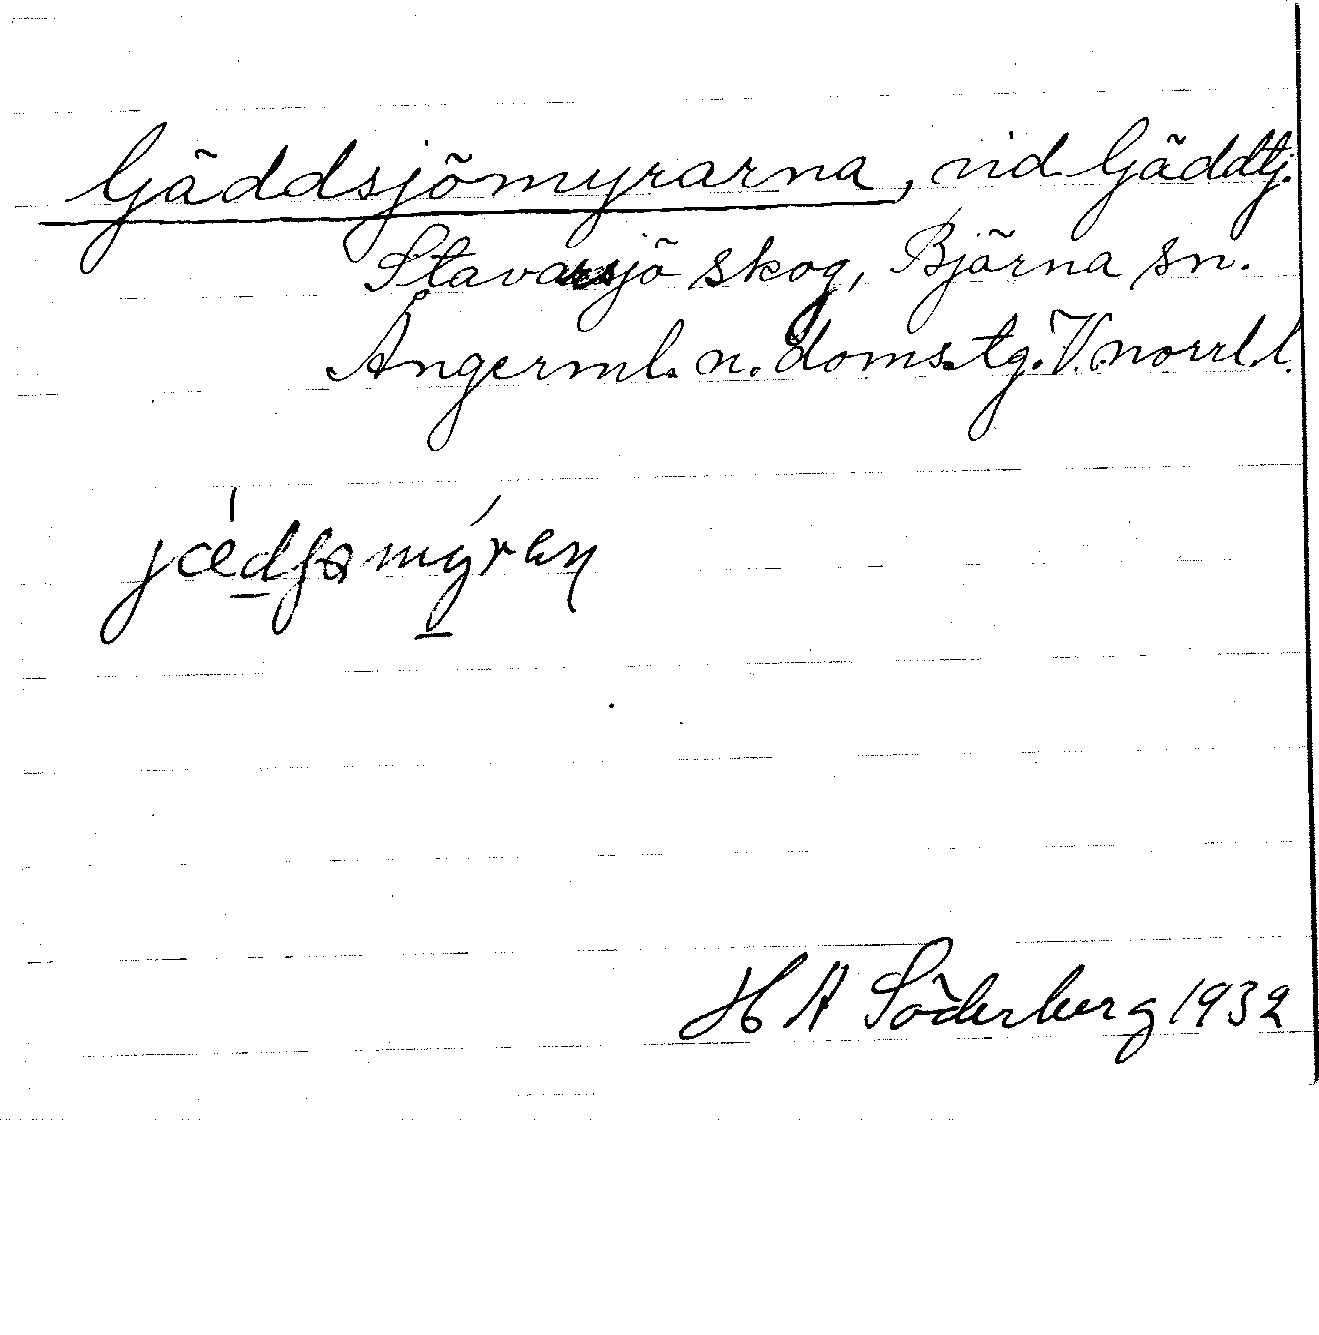 Gäddsjömyrarna, vid Gäddtj.
Stavarsjö skog, Björna sn.
Ångerml. n. doms.tg. V.norrl.l.
jædʃømýren
H A Söderberg 1932